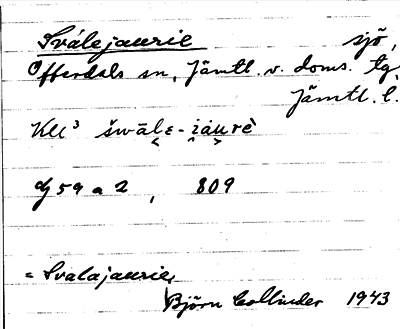 Svålejaurie sjö,
Offerdals sn, Jämtl. v. doms. tg
Jämtl. l.
KU³ šwāl̬ɛ-i̯äu̬rè
59 a 2, 809
= Svalajaurie,
Björn Collinder 1943